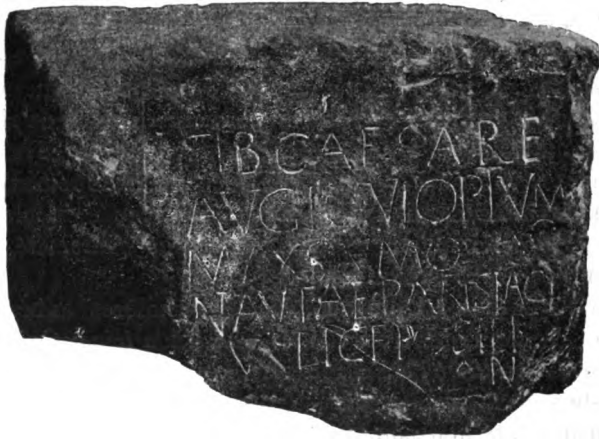 TIB CAESARE
AVG IOVI OPTVM
MAXSVMO
NAVTAE PARISIACI